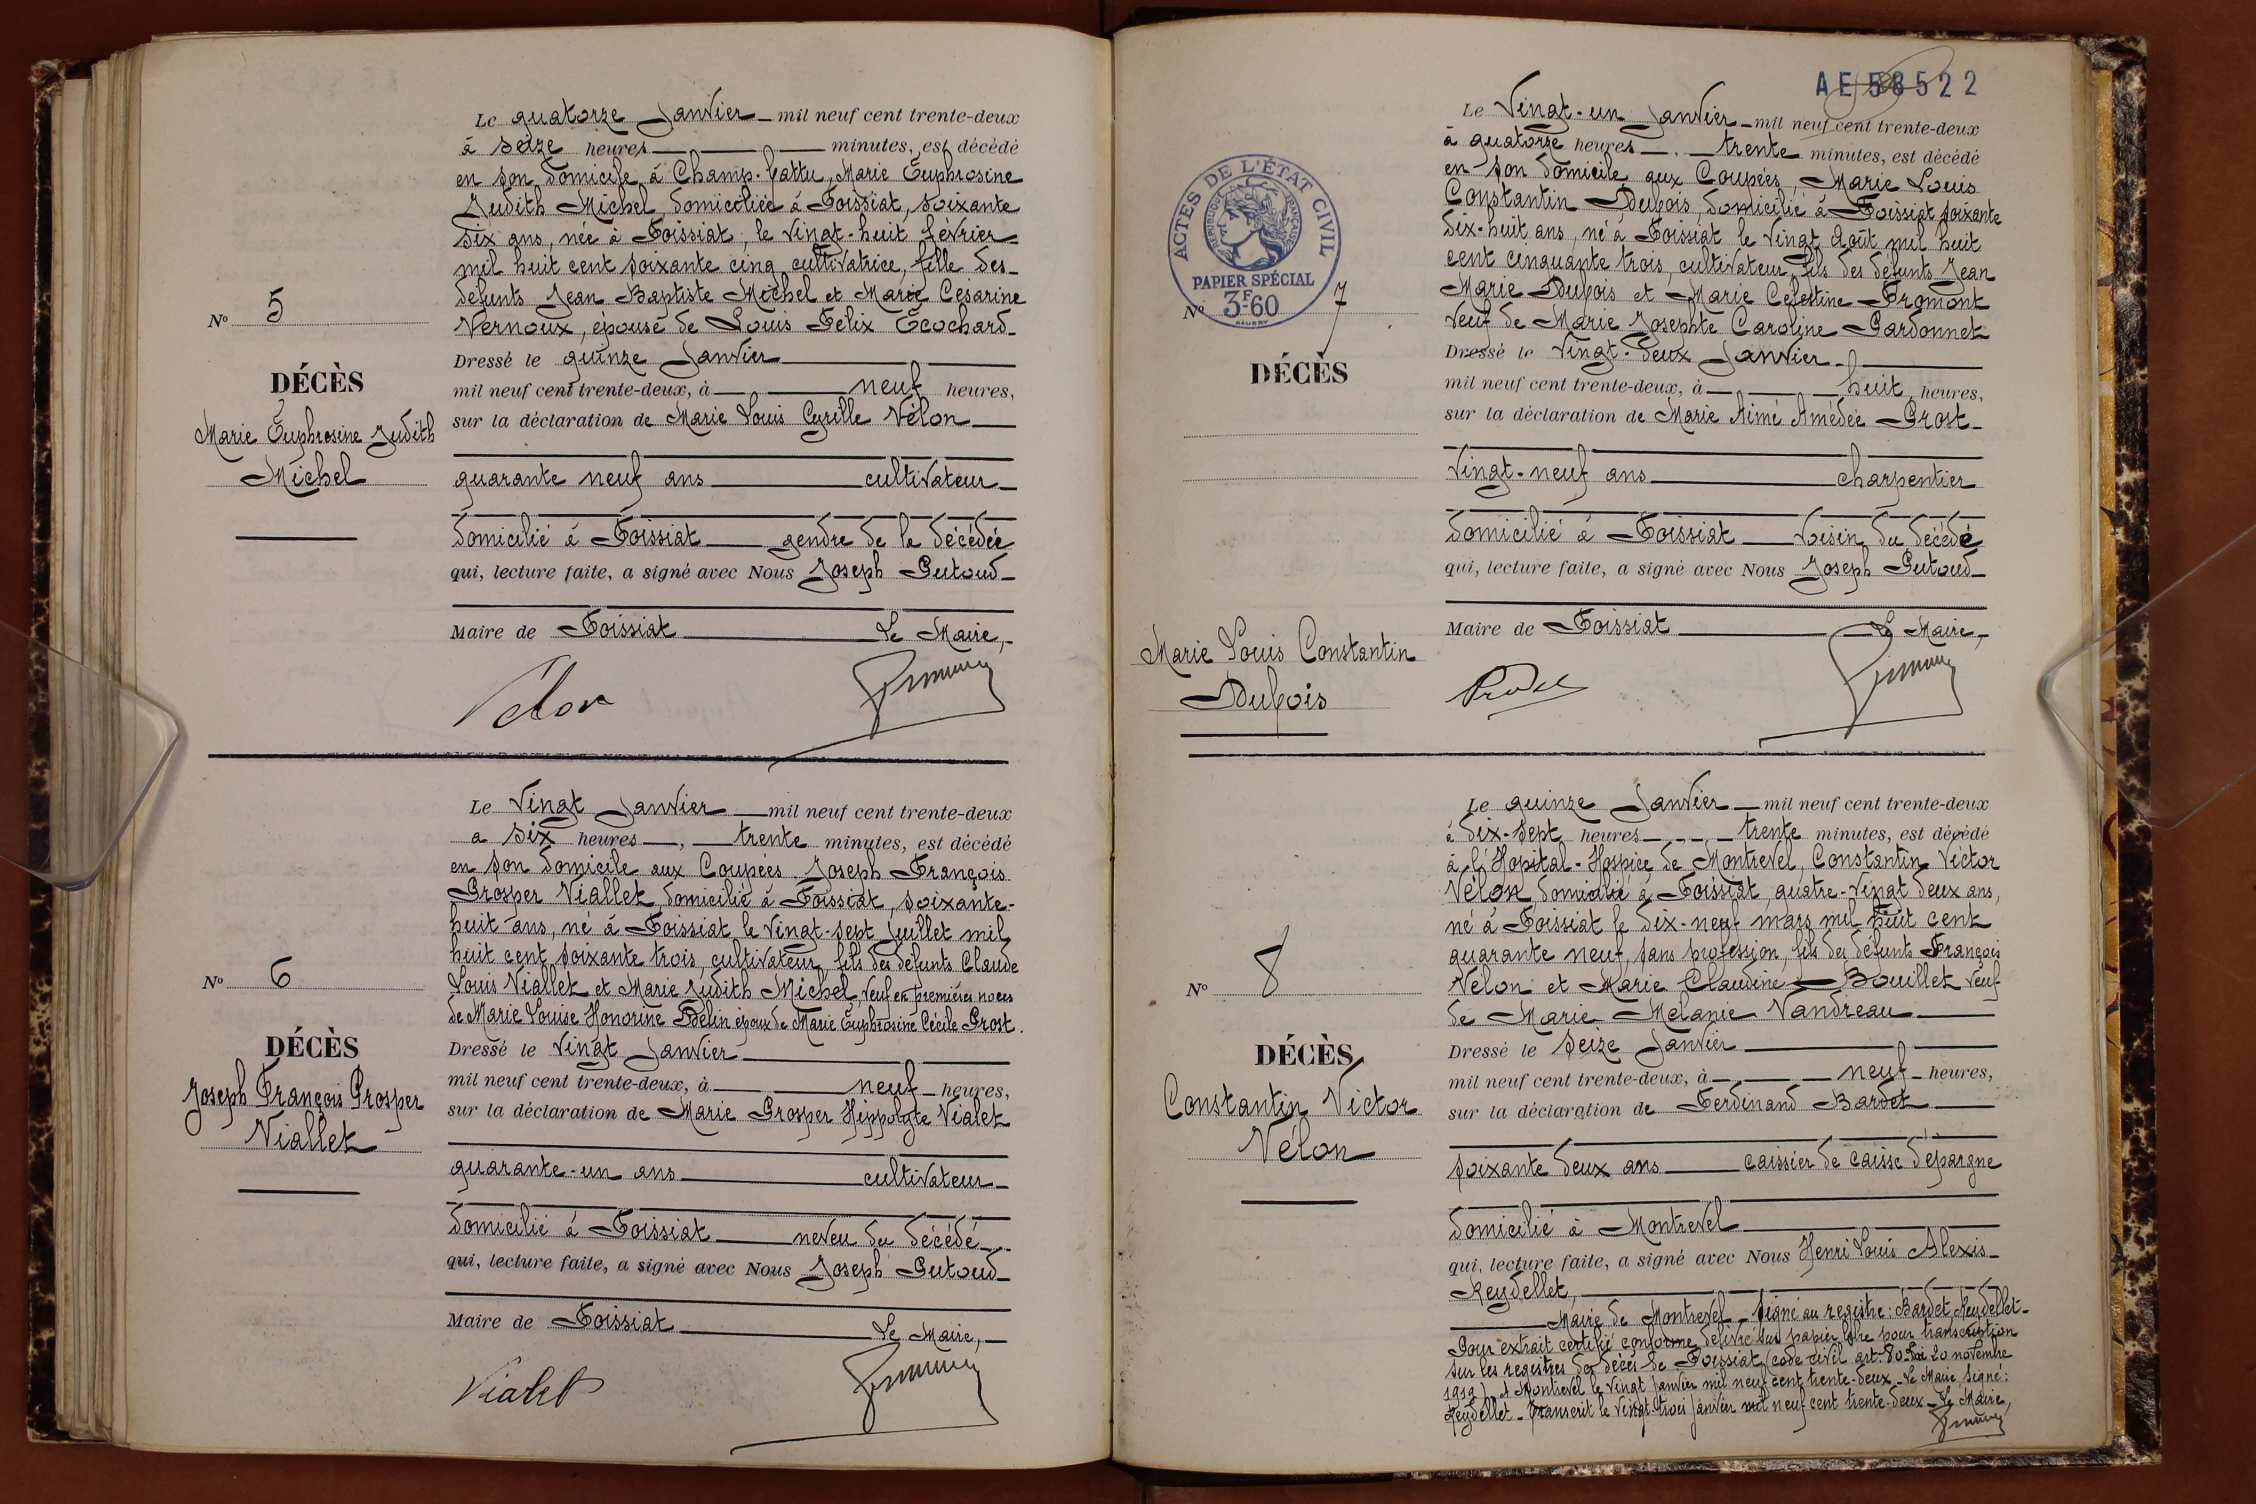 Le quatorze Janvier mil neuf cent trente-deux
à seize heures minutes, est décédé
en son domicile à Champ-battu, Marie Euphrosine
Judith Michel, domiciliée à Foissiat, soixante
six ans, née à Foissiat, le vingt-huit février
mil huit cent soixante cinq cultivatrice, fille des
défunts Jean Baptiste Michel et Marie Césarine
Vernoux, épouse de Louis Félix Ecochard
Dressé le quinze Janvier
mil neuf cent trente-deux, à neuf heures,
sur la déclaration de Marie Louis Cyrille Vélon
quarante neuf ans cultivateur
domicilié à Foissiat gendre de la décédée
qui, lecture faite, a signé avec Nous Joseph Putoud
Maire de Foissiat Le Maire,
Velon
No 5
DÉCÈS
Marie Euphrosine Judith
Michel
Le vingt Janvier mil neuf cent trente-deux
a six heures, trente minutes, est décédé
en son domicile aux Coupées Joseph François
Prosper Viallet, domicilié à Foissiat, soixante-
huit ans, né à Foissiat le vingt-sept Juillet mil
huit cent soixante trois, cultivateur, fils des défunts Claude
Louis Viallet et Marie Judith Michel, veuf en premières noces
de Marie Louise Honorine Pdelin époux de Marie Euphrosine Cécile Prost.
Dressé le vingt Janvier
mil neuf cent trente-deux, à neuf heures,
sur la déclaration de Marie Prosper Hippolyte Vialet
quarante-un ans cultivateur
domicilié à Foissiat neveu du décédé
qui, lecture faite, a signé avec Nous Joseph Putoud
Maire de Foissiat Le Maire,
Vialet
No 6
DÉCÈS
Joseph François Prosper
Viallet
AE 58522
ACTES DE L'ÉTAT CIVIL
RÉPUBLIQUE FRANÇAISE
PAPIER SPÉCIAL
3F60
Le vingt-un Janvier mil neuf cent trente-deux
à quatorze heures trente minutes, est décédé
en son domicile aux Coupées, Marie Louis
Constantin Dubois, domicilié à Foissiat soixante
dix-huit ans, né à Foissiat le vingt Août mil huit
cent cinquante trois, cultivateur, fils des défunts Jean
Marie Dubois et Marie Celestine Fromont
veuf de Marie Josephte Caroline Pardonnet
Dressé le vingt-deux Janvier
mil neuf cent trente-deux, à huit heures,
sur la déclaration de Marie Aimé Amédée Prost
vingt-neuf ans charpentier
domicilié à Foissiat voisin du décédé
qui, lecture faite, a signé avec Nous Joseph Putoud
Maire de Foissiat Le Maire,
No 7
DÉCÈS
Marie Louis Constantin
Dubois
Le quinze Janvier mil neuf cent trente-deux
à dix-sept heures trente minutes, est décédé
à l'Hopital-Hospice de Montrevel, Constantin Victor
Vélon, domicilié à Foissiat, quatre-vingt deux ans,
né à Foissiat le dix-neuf mars mil huit cent
quarante neuf, sans profession, fils des défunts François
Vélon et Marie Claudine Bouillet veuf
de Marie Mélanie Vandreau
Dressé le seize Janvier
mil neuf cent trente-deux, à neuf heures,
sur la déclaration de Ferdinand Bardet
soixante deux ans caissier de caisse d'épargne
domicilié à Montrevel
qui, lecture faite, a signé avec Nous Henri Louis Alexis
Reydellet,
Maire de Montrevel Signé au registre: Bardet Reydellet
Pour extrait certifié conforme délivré sur papier libre pour transcription
sur les registres de décès de Foissiat (code civil art. 80 Loi 20 novembre
1919) A Montrevel le vingt Janvier mil neuf cent trente-deux Le Maire signé:
Reydellet Transcrit le vingt-trois Janvier mil neuf cent trente-deux Le Maire,
No 8
DÉCÈS
Constantin Victor
Vélon